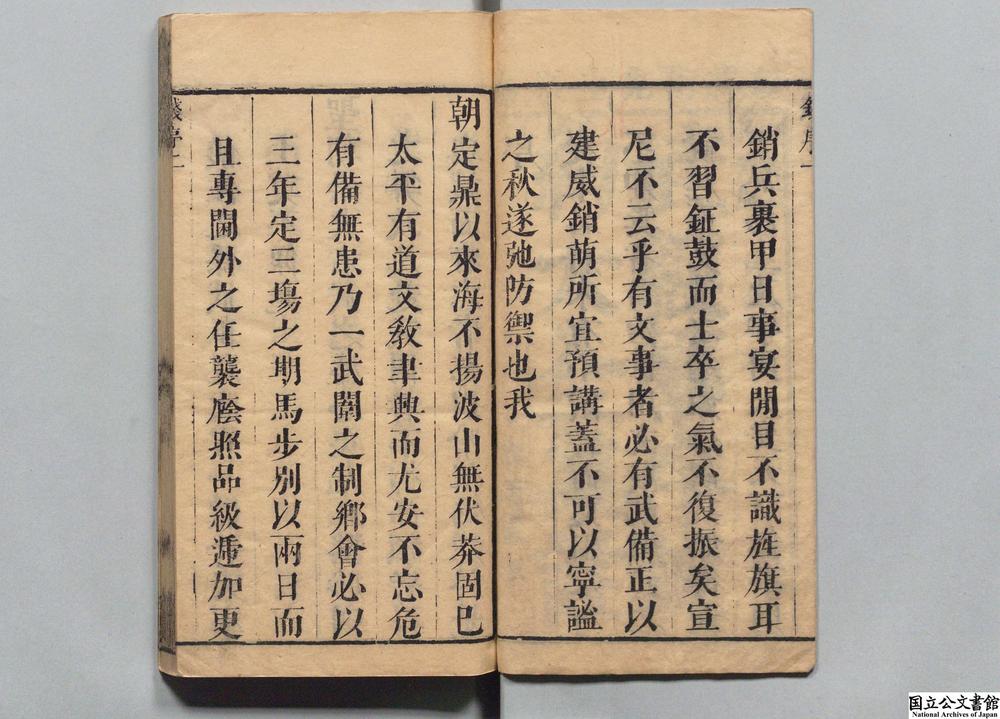 銷兵裹甲日事宴閒目不識旌旗耳
不習鉦鼓而士卒之氣不復振矣宣
尼不云乎有文事者必有武備正以
建威銷萌所宜預講蓋不可以寧謐
之秋遂弛防禦也我
朝定鼎以來海不揚波山無伏莽固已
太平有道文敎聿興而尤安不忘危
有備無患乃一武闈之制鄉會必以
三年定三塲之期馬步別以兩日而
且專閫外之任襲廕照品級遞加更
錢序二
国立公文書館
National Archives of Japan